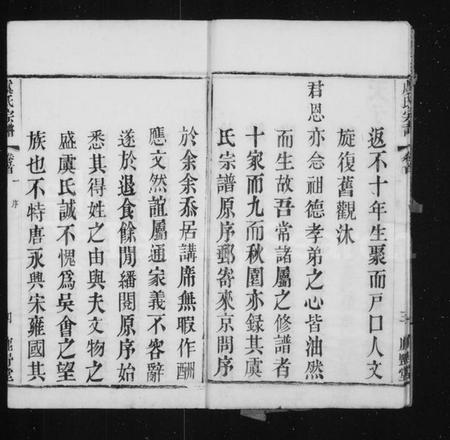 返不十年生聚而戸口人文
旋復舊觀沐
君恩亦念祖德孝弟之心皆油然
而生故吾常諸屬之修譜者
十家而九而秋圍亦録其虞
氏宗譜原序郵寄來京問序
於余余忝居講席無暇作酬
應文然誼屬通家義不容辭
遂於退食餘閒繙閱原序始
悉其得姓之由與夫文物之
盛虞氏誠不愧爲吳會之望
族也不特唐永興宋雍國其
虞氏宗譜
卷首
序